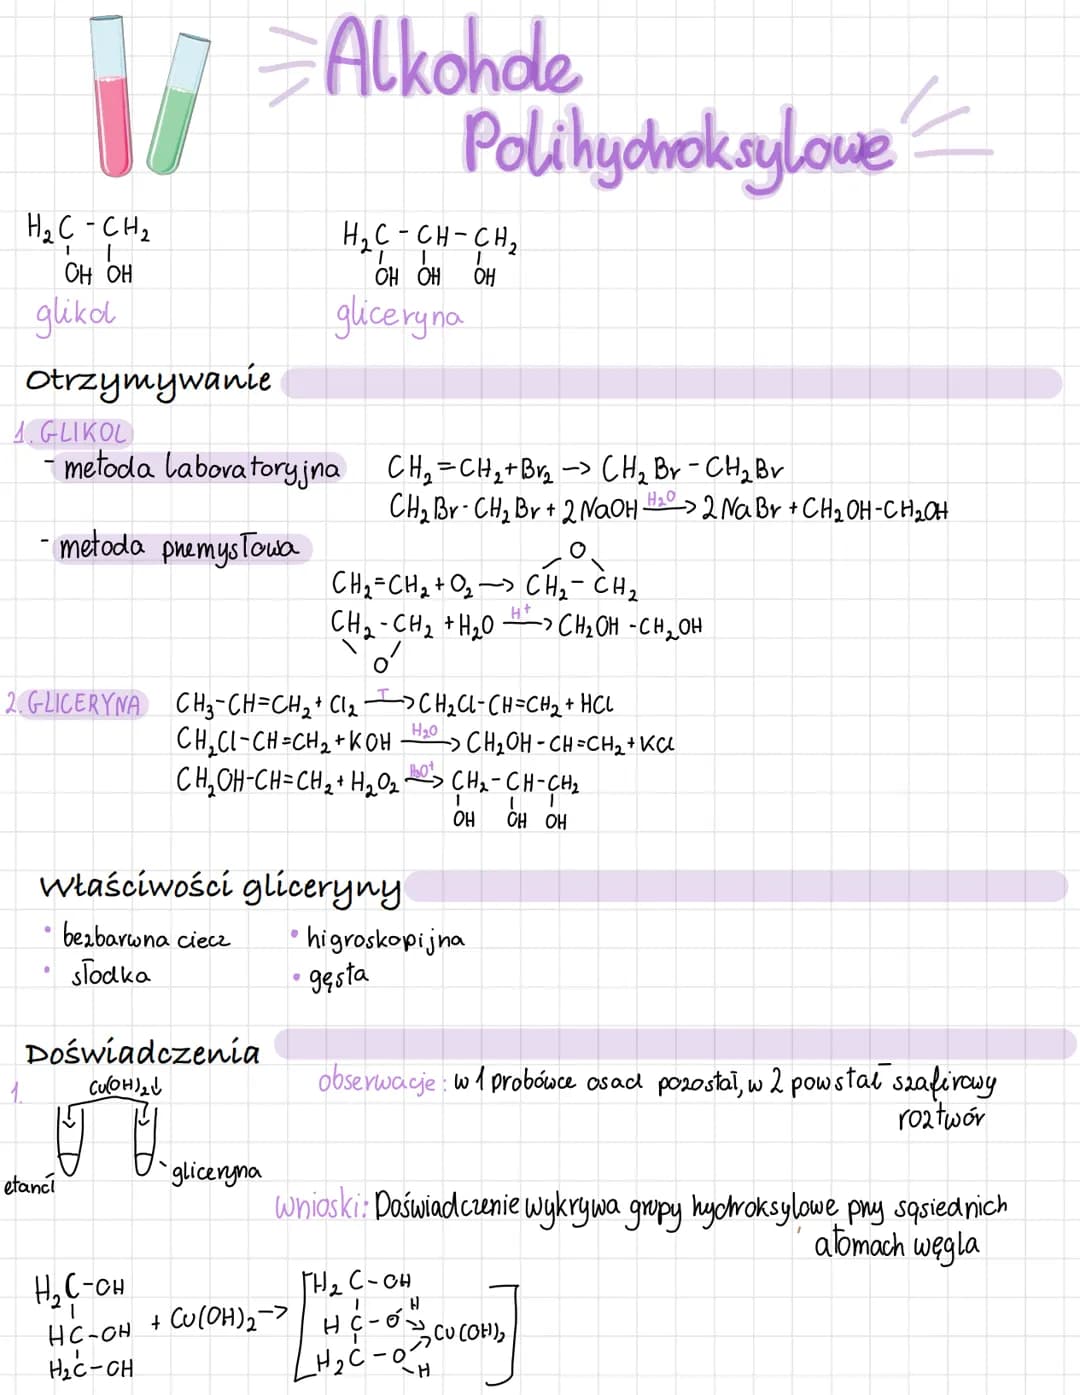 Alkohole
Polihydroksylowe
H₂C - CH₂
OH OH
glikol
H₂C - CH - CH₂
OH OH OH
gliceryna
Otrzymywanie
1. GLIKOL
- metoda laboratoryjna
CH₂=CH₂+Br₂ -> CH₂Br - CH₂Br
CH₂Br - CH₂Br + 2NaOH —H₂O-> 2NaBr + CH₂OH-CH₂OH
- metoda przemysłowa
O
CH₂=CH₂ + O₂ —> CH₂ - CH₂
CH₂ - CH₂ + H₂O —H⁺-> CH₂OH - CH₂OH
O
2. GLICERYNA
CH₃-CH=CH₂ + Cl₂ —T-> CH₂Cl-CH=CH₂ + HCl
CH₂Cl-CH=CH₂ + KOH —H₂O-> CH₂OH - CH=CH₂ + KCl
CH₂OH-CH=CH₂ + H₂O₂ —H₃O⁺-> CH₂ - CH - CH₂
OH OH OH
Właściwości gliceryny
• bezbarwna ciecz
• słodka
• higroskopijna
• gęsta
Doświadczenia
1.
Cu(OH)₂↓
etanol
gliceryna
obserwacje: w 1 probówce osad pozostał, w 2 powstał szafirowy
roztwór
wnioski: Doświadczenie wykrywa grupy hydroksylowe przy sąsiednich
atomach węgla
H₂C-OH
HC-OH + Cu(OH)₂ ->
H₂C-OH
[H₂C-OH
H
HC-O -> Cu(OH)₂
H₂C-O
H]